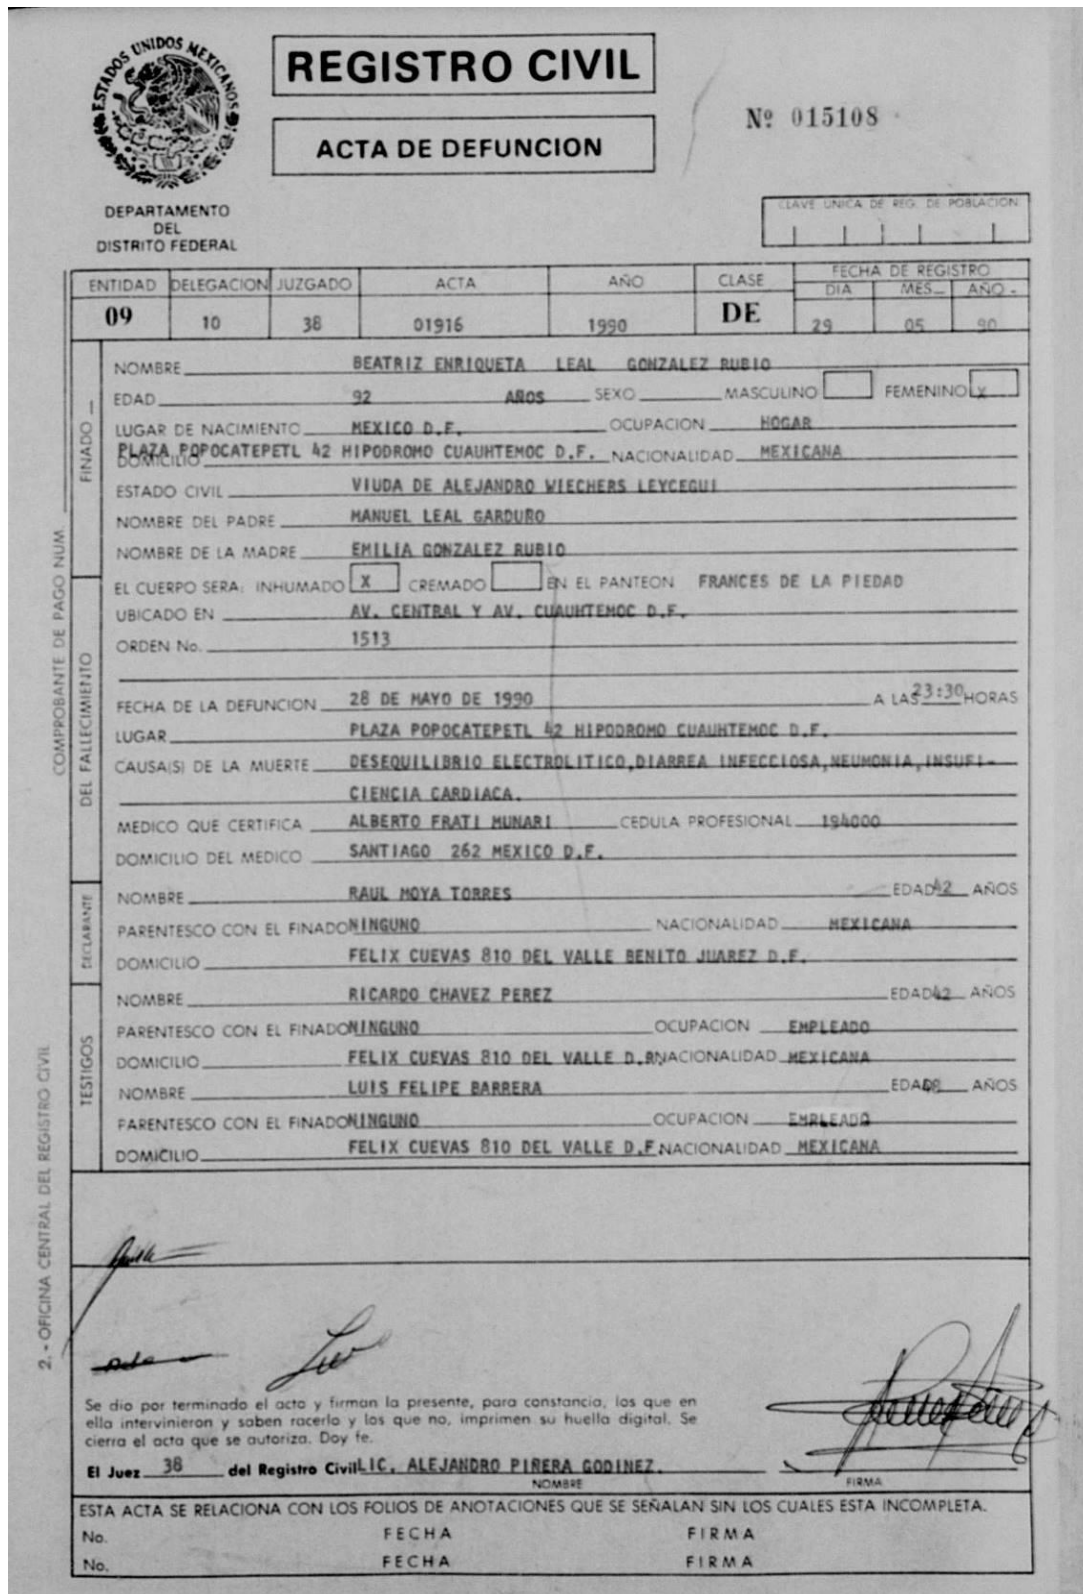 ESTADOS UNIDOS MEXICANOS
REGISTRO CIVIL
ACTA DE DEFUNCION
Nº 015108
DEPARTAMENTO
DEL
DISTRITO FEDERAL
CLAVE UNICA DE REG. DE POBLACION
ENTIDAD DELEGACION JUZGADO ACTA AÑO CLASE FECHA DE REGISTRO
DIA MES AÑO
09 10 38 01916 1990 DE 29 05 90
FINADO
NOMBRE BEATRIZ ENRIQUETA LEAL GONZALEZ RUBIO
EDAD 92 AÑOS SEXO MASCULINO FEMENINO X
LUGAR DE NACIMIENTO MEXICO D.F. OCUPACION HOGAR
DOMICILIO PLAZA POPOCATEPETL 42 HIPODROMO CUAUHTEMOC D.F. NACIONALIDAD MEXICANA
ESTADO CIVIL VIUDA DE ALEJANDRO WIECHERS LEYCEGUI
NOMBRE DEL PADRE MANUEL LEAL GARDUÑO
NOMBRE DE LA MADRE EMILIA GONZALEZ RUBIO
COMPROBANTE DE PAGO NUM.
DEL FALLECIMIENTO
EL CUERPO SERA: INHUMADO X CREMADO EN EL PANTEON FRANCES DE LA PIEDAD
UBICADO EN AV. CENTRAL Y AV. CUAUHTEMOC D.F.
ORDEN No. 1513
FECHA DE LA DEFUNCION 28 DE MAYO DE 1990 A LAS 23:30 HORAS
LUGAR PLAZA POPOCATEPETL 42 HIPODROMO CUAUHTEMOC D.F.
CAUSA(S) DE LA MUERTE DESEQUILIBRIO ELECTROLITICO,DIARREA INFECCIOSA,NEUMONIA,INSUFI-
CIENCIA CARDIACA.
MEDICO QUE CERTIFICA ALBERTO FRATI MUNARI CEDULA PROFESIONAL 194000
DOMICILIO DEL MEDICO SANTIAGO 262 MEXICO D.F.
DECLARANTE
NOMBRE RAUL MOYA TORRES EDAD 42 AÑOS
PARENTESCO CON EL FINADO NINGUNO NACIONALIDAD MEXICANA
DOMICILIO FELIX CUEVAS 810 DEL VALLE BENITO JUAREZ D.F.
TESTIGOS
NOMBRE RICARDO CHAVEZ PEREZ EDAD 42 AÑOS
PARENTESCO CON EL FINADO NINGUNO OCUPACION EMPLEADO
DOMICILIO FELIX CUEVAS 810 DEL VALLE D.F. NACIONALIDAD MEXICANA
NOMBRE LUIS FELIPE BARRERA EDAD AÑOS
PARENTESCO CON EL FINADO NINGUNO OCUPACION EMPLEADO
DOMICILIO FELIX CUEVAS 810 DEL VALLE D.F. NACIONALIDAD MEXICANA
2.- OFICINA CENTRAL DEL REGISTRO CIVIL
Se dio por terminado el acto y firman la presente, para constancia, los que en
ella intervinieron y saben hacerlo y los que no, imprimen su huella digital. Se
cierra el acta que se autoriza. Doy fe.
El Juez 38 del Registro Civil LIC. ALEJANDRO PIÑERA GODINEZ.
NOMBRE FIRMA
ESTA ACTA SE RELACIONA CON LOS FOLIOS DE ANOTACIONES QUE SE SEÑALAN SIN LOS CUALES ESTA INCOMPLETA.
No. FECHA FIRMA
No. FECHA FIRMA